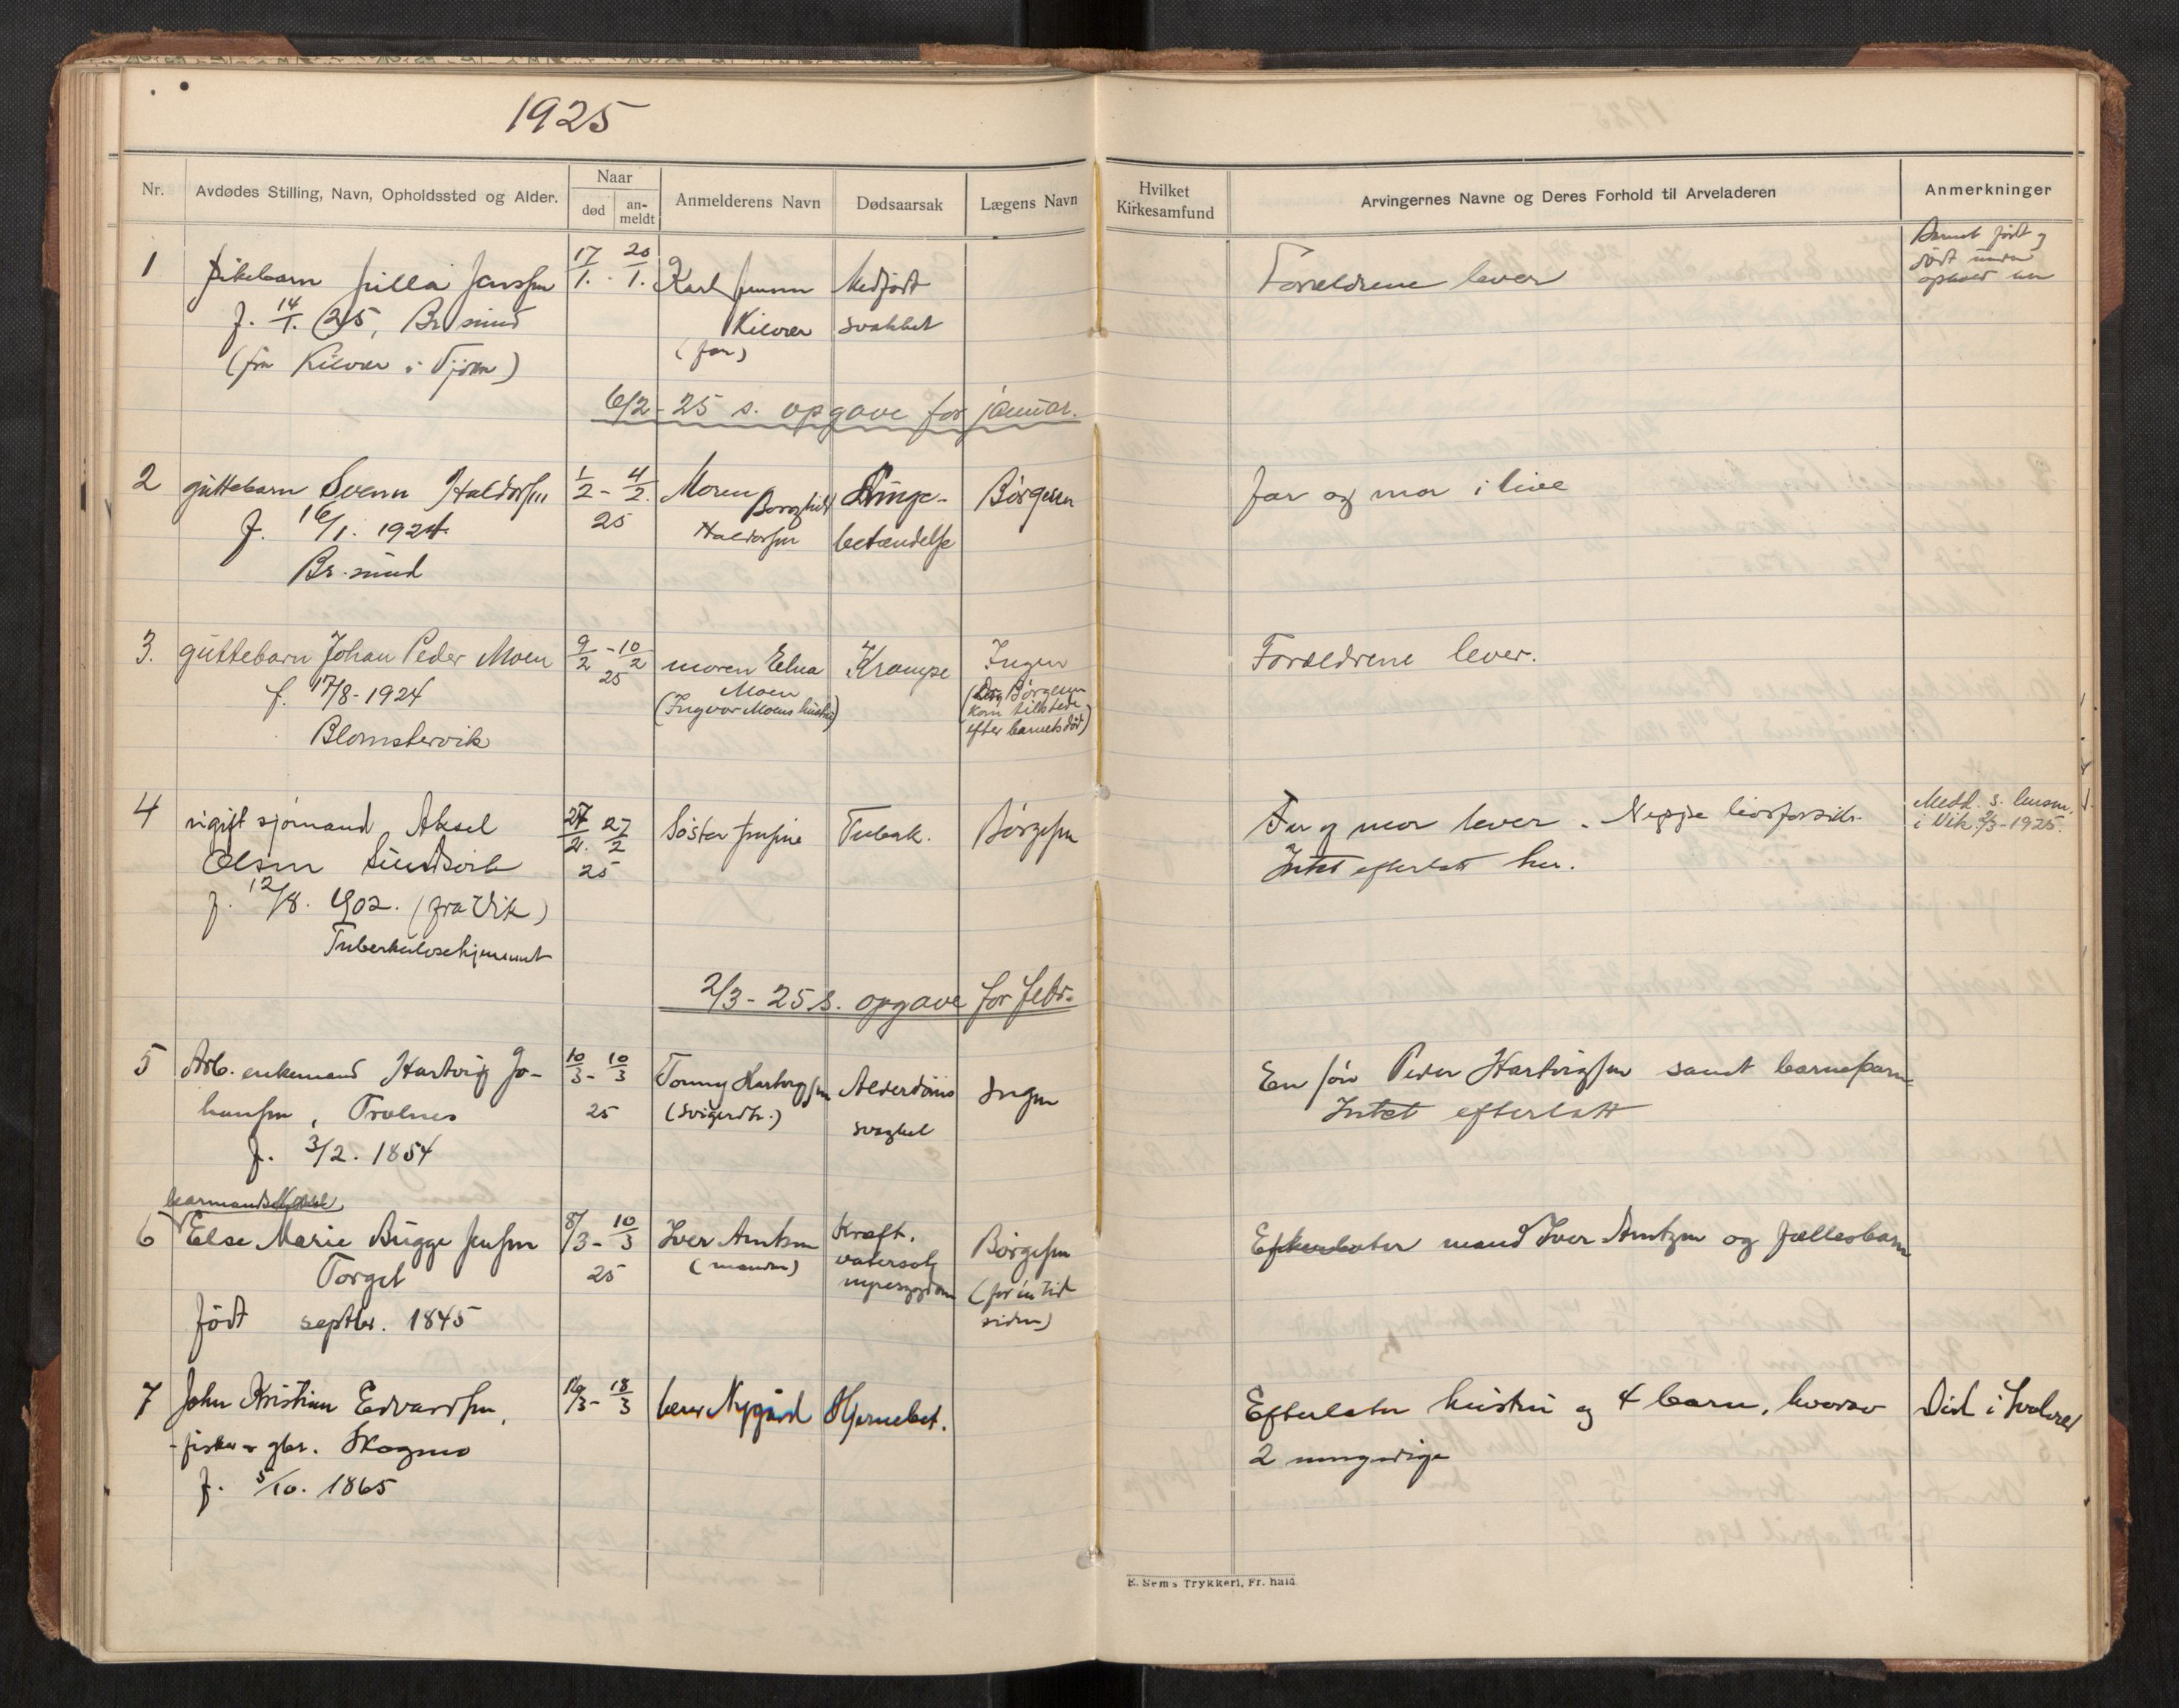 1925
Nr.
Avdødes Stilling, Navn, Opholdssted og Alder.
Naar
død
an-
meldt
Anmelderens Navn
Dødsaarsak
Lægens Navn
Hvilket
Kirkesamfund
Arvingernes Navne og Deres Forhold til Arveladeren
Anmerkninger
1
pikebarn Jilla Jenssen
f. 14/1. (25), Br sund
(fra Kilvær i Tjøtta)
17/1. - 20/1.
Karl Jensen
Kilvær
(far)
Medfødt
svakhet
Forældrene lever
Barnet født og
død under
ophold her
6/2 - 25 s. opgave for januar.
2
guttebarn Svenn Haldorsen
f. 16/1. 1924.
Br. sund
1/2 - 4/2.
25
Moren
Borghild
Haldorsen
Lunge-
betændelse
Børgesen
far og mor i live
3.
guttebarn Johan Peder Moen
f. 17/8 - 1924
Blomstervik
9/2 - 10/2
25
moren Elna
Moen
(Ingvar Moens hustru)
Krampe
Ingen
(Dr. Børgesen
kom tilstede
efter barnets død)
Forældrene lever.
4
ugift sjømand Aksel
Olsen Sundsvik
f. 12/8. 1902. (fra Vik)
Tuberkulosehjemmet
27/2. 27/2
25
Søster Josefine
Tuberk.
Børgesen
Far og mor lever - Neppe livsforsikr.
Intet efterlatt her.
Medd. s. lensm.
i Vik 2/3 - 1925.
2/3 - 25 s. opgave for febr.
5
Arb. enkemand Hartvig Jo-
hansen, Trælnes
f. 3/2. 1854
10/3 - 10/3
25
Tonny Hartvigsen
(svigerdtr.)
Alderdoms
svaghet
Ingen
En søn Peder Hartvigsen samt barnebarn
Intet efterlatt
6
Else Marie Bugge Jensen
Torget
født septbr. 1845
8/3 - 10/3
25
Iver Arntzen
(manden)
Kraft.
vatersot
nyresygdom
Børgesen
(for en tid
siden)
Efterlater mand Iver Arntzen og fællesbarn
7
John Kristian Edvardsen,
fisker og gbr. Skogmo
f. 5/10. 1865
16/3 - 18/3
lensm. Nygård
Hjernebet.
Efterlater hustru og 4 barn, hvorav
2 umyndige
Død i Svolvær
E. Sem's Trykkeri, Fr. hald